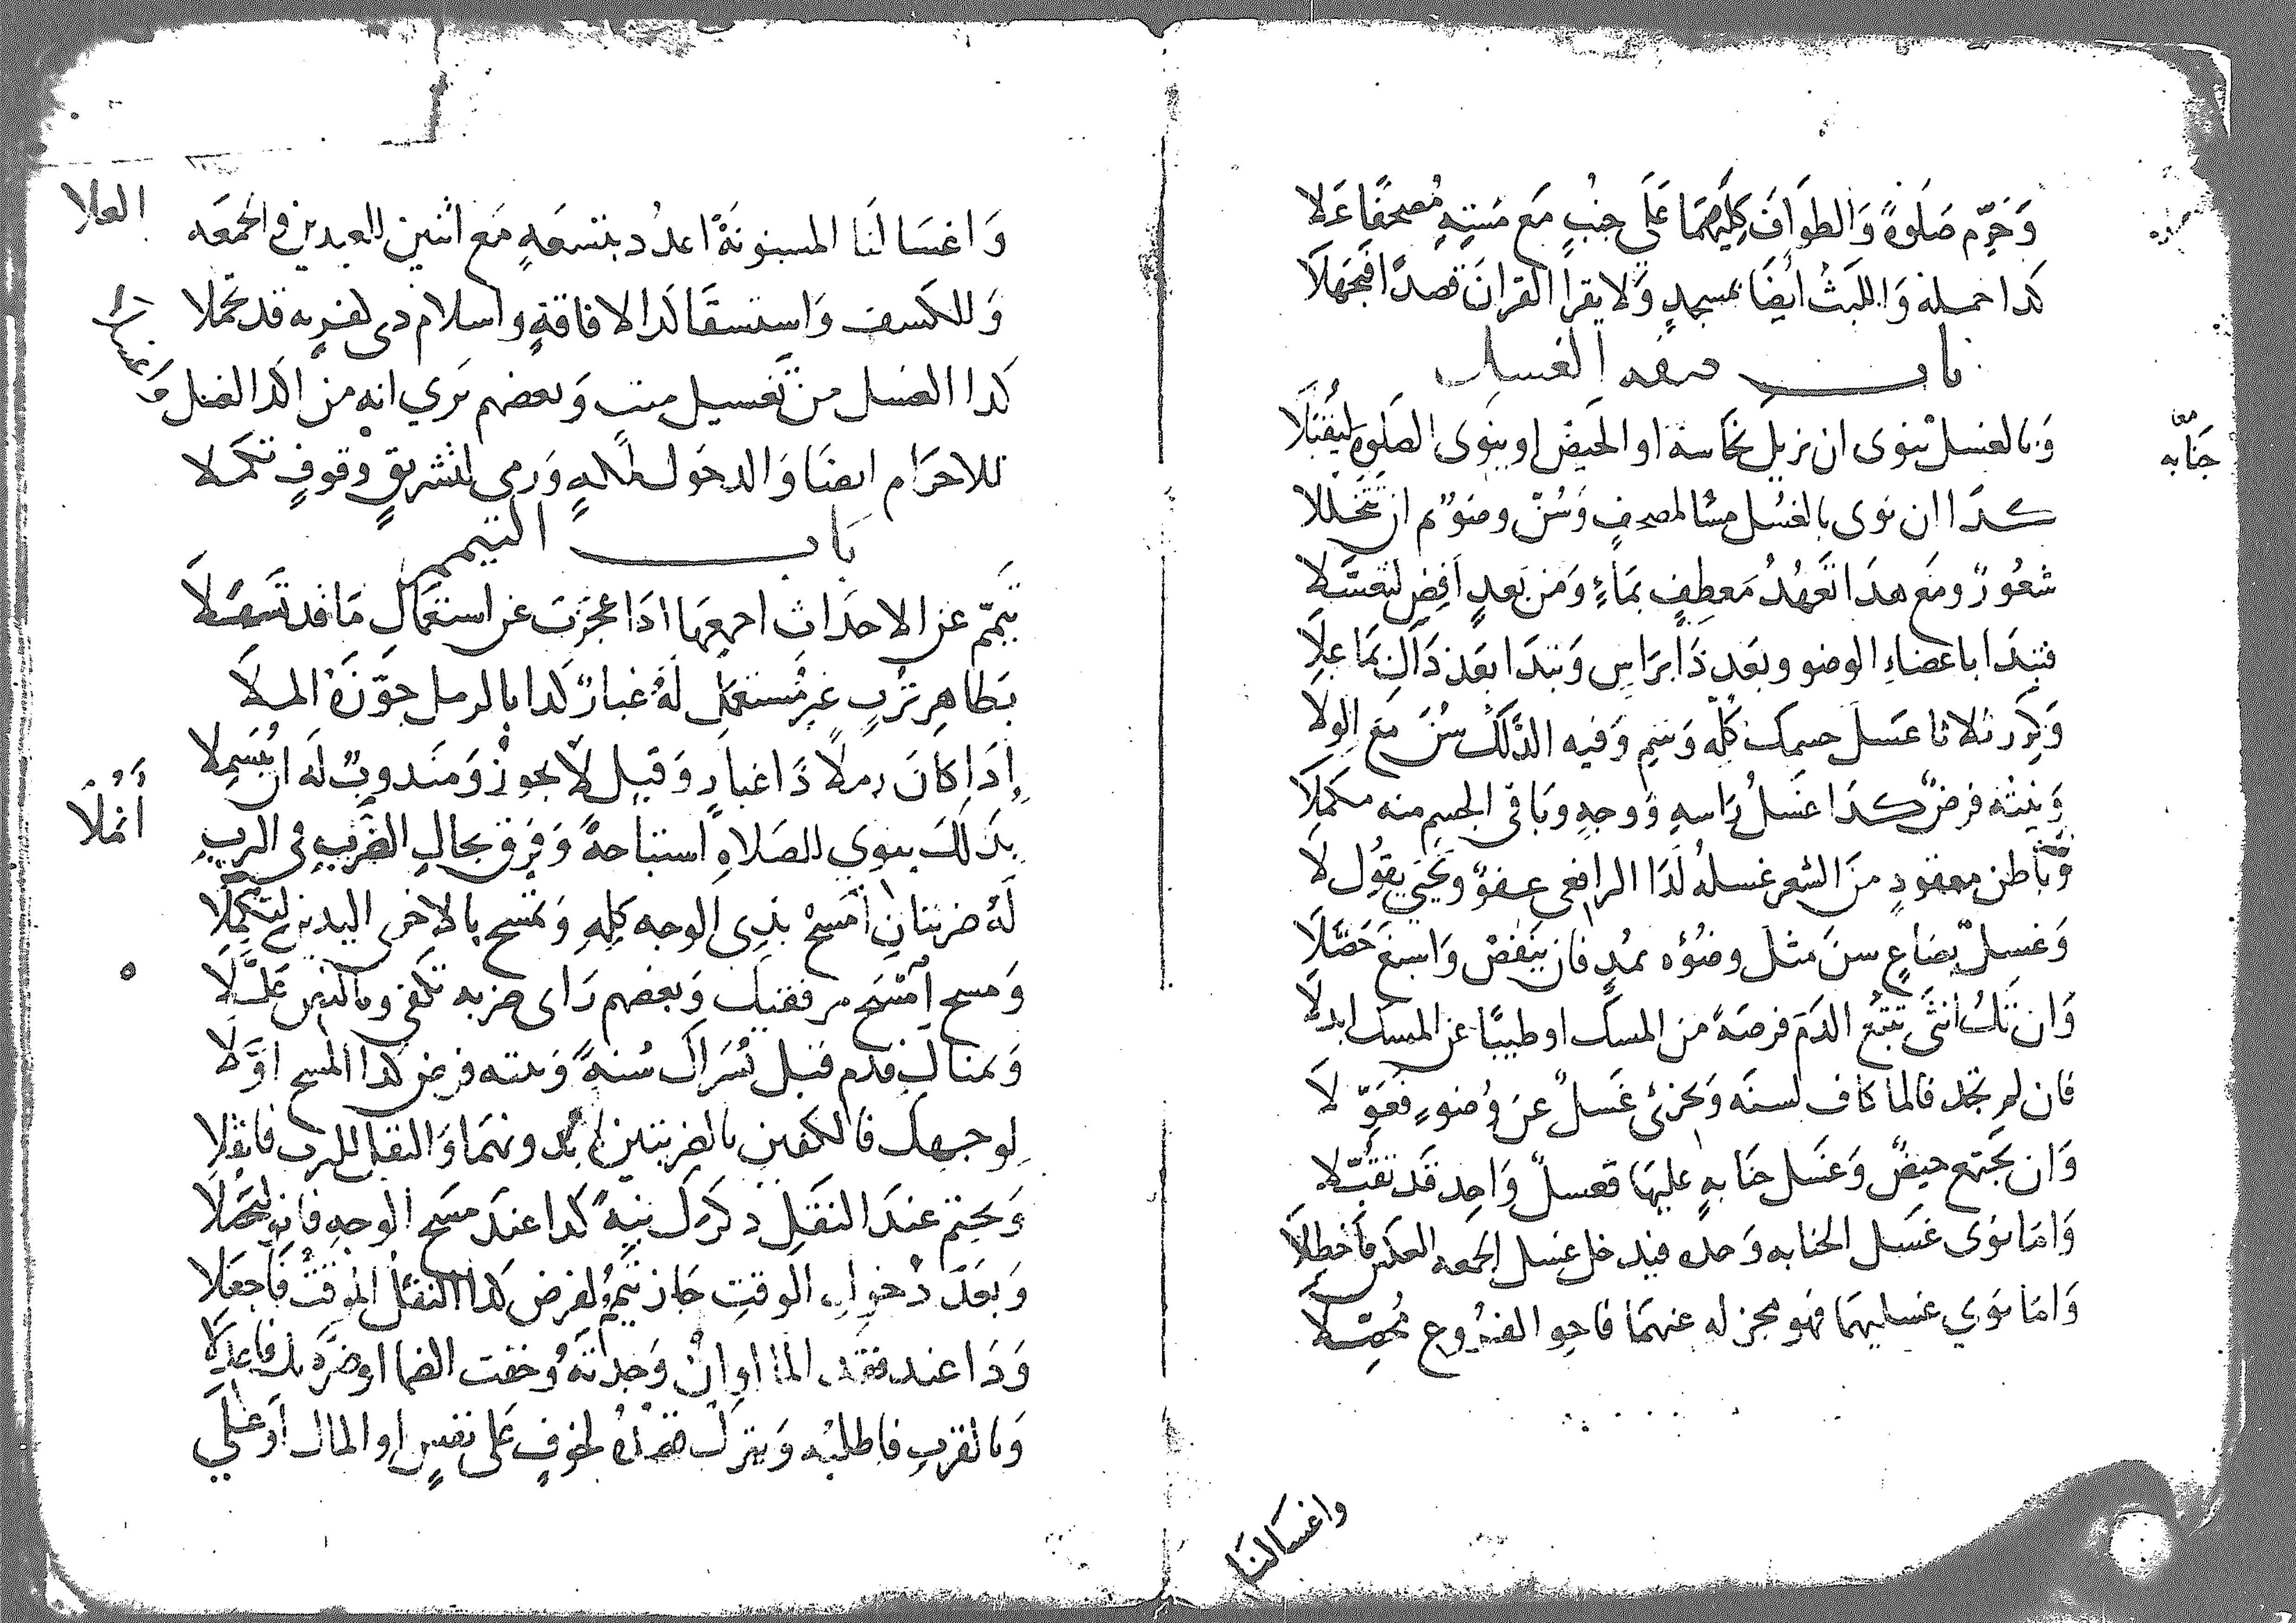 وَحَرِّم صَلَوةً وَالطوَافَ كِلَيهِمَا عَلَي جنُبٍ مَع مَسّهِ مُصحفًا عَلا
كذا حمله وَاللبَثُ ايضًا بمسجدٍ وَلا يقرا القرانَ قصدًا فيجهَلَا
باب صفه الغسل
وَبالغسل ينوى ان نزيل نجَاسة او الحيضَ او ينوى الصَلوه ليُقبَلَا
جنابه
كذَا ان نوى بالغسُل مسَّا لمصحفٍ وَسُنّ وضوٌ ثم ان تتخَللا
شعُورٌ ومَع هذَا تَعَهُدُ مَعطِفٍ بمَاءٍ وَمن بَعدٍ أفِض لتغسّلَا
فتبدَا باعضَاءِ الوضو وبَعد ذَا برَاسٍ وَتبدَا بعَد ذَاك بمَا علَا
وَكرر ثلاثا غسَلَ جسمك كُلّه وَسَمِ وَفيه الدَّلكُ سُنَ مَع الولا
وَنيته فرضٌ كذَا غسَلُ رَاسهِ وَوجهِ وبَاقى الجسم منه مكملَا
وَبَاطن معقودٍ منَ الشعر غسلهُ لدَا الرافعى عفوٌ ويَحيَى يقوُل لَا
وَغسل بصَاعٍ سنَ مثل وضُوُه بمُدٍ فان ينقُص وَاسبغ حَصّلَا
وَان تَكُ انثى تتبَع الدَمَ فرصَةً من المسك او طيبًا عن المسك ابدلَا
فان لم تجد فالما كاف لسنَه وَيجزئ غَسلٌ عنَ وُضوءٍ فعَوّلَا
وَان يَجتمع حيضٌ وَغسَل جنَابهٍ عليهَا فغسلٌ وَاحِد قَد تقبّلا
وَامَا نوَى غسَل الجنابه وَحده فيدخل غسل الجمعه العكسَ فَاخطِلَا
وَامَا نوي غسليهمَا فهو مجز له عنهمَا فاحو الفرُوع مُحصّلَا
واغسَالنَا
وَاغسَالنَا المسنونَةُ اعدُد بتسعَهٍ مَع اثنين للعيدين والجمعَه
العلا
وَللكسف وَاستسقَا لدَا الافاقةٍ واسلام ذى كفرٍ به قد تحمّلا
كذا الغسل من تغسيل ميتٍ وَبعضهم يَري انه من اكد الغسل
للاحرَام ايضَا وَالدخوَل لمكهٍ وَرمى لتشريقٍ وقوفٍ تكمَلا
باب التيمم
تَيَمّم عن الاحدَاث اجمعِهَا اذَا عجَزتَ عن استعمَال مَا قد تسَهَّلَا
بَطاهِر ترُبٍ غيِر مُستعمَلٍ لَهُ غبارٌ كذا بالرمل جوّزَهُ الملَا
إذَا كانَ رملًا ذَا غبارٍ وَقيل لَا يجوزُ وَمندوبٌ لَه ان يُبَسِملا
بذَلكَ ينوي للصَلاةِ استباحةً وَفرق بحالِ الضَربِ فى الترب
أنمُلَا
لَهُ ضربتان امسَح بذى الوجه كلهِ وَتمسَح بالاخرى اليدين لتكملَا
وَمسح امسَح مرفقيك وَبعضهم رَاى ضربه تكفى وبالنص عَلّلَا
وَيمناك قدم قبل يُسرَاك سُنةً وَنيته فرض كذا المسح اوّلَا
لوجهك فالكفين بالضربتين لا بدونهمَا وَالنقل للترب فانقلا
وَيحتم عندَ النقَل ذكركَ نيةً كذا عندَ مَسَح الوجهِ فانوِ لتَحصُلَا
وَبعَدَ دُخولِ الوقتِ جَاز تيَممٌ لفرض كذا النفل الموقتُ فَاجعَلا
وَذا عند فقد الما اوانْ وَجدتَهُ وَخفت الظما او ضرَّه بك فاعدلَا
وَبالقربِ فاطلبُه وَيترك قصدُهُ لخوفٍ عَلى نفسٍ او المال اوعَلَي